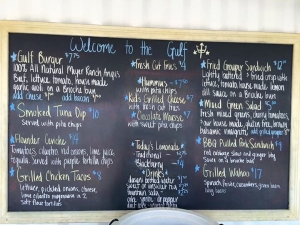 Welcome to the Gulf
Gulf Burger $7.75
100% All Natural Meyer Ranch Angus
Beef, lettuce, tomato, house made
garlic aioli on a Brioche bun
add cheese $1 add bacon
Smoked Tuna Dip $10
Served with pita chips
Flounder Ceviche $14
Tomatoes, cilantro, red onions, lime juice,
tequila Served with purple tortilla chips
Grilled Chicken Tacos $8
lettuce, pickled onions, cheese,
lime cilantro mayonnaise on 2
soft flour tortillas
Fresh Cut Fries $4
Hummus
with pita chips
Kid's Grilled Cheese
with fries
Chocolate Mousse
with sweet pita chips
Today's Lemonade
Traditional
Blackberry
Drinks
Fried Grouper Sandwich $12
Lightly battered & fried crisp with
lettuce, tomato, house made lemon
dill sauce on a Brioche bun
Mixed Green Salad $5
fresh mixed greens, cherry tomatoes,
balsamic vinaigrette
BBQ Pulled Pork Sandwich $9
Sauce on a brioche bun
Grilled Wahoo $17